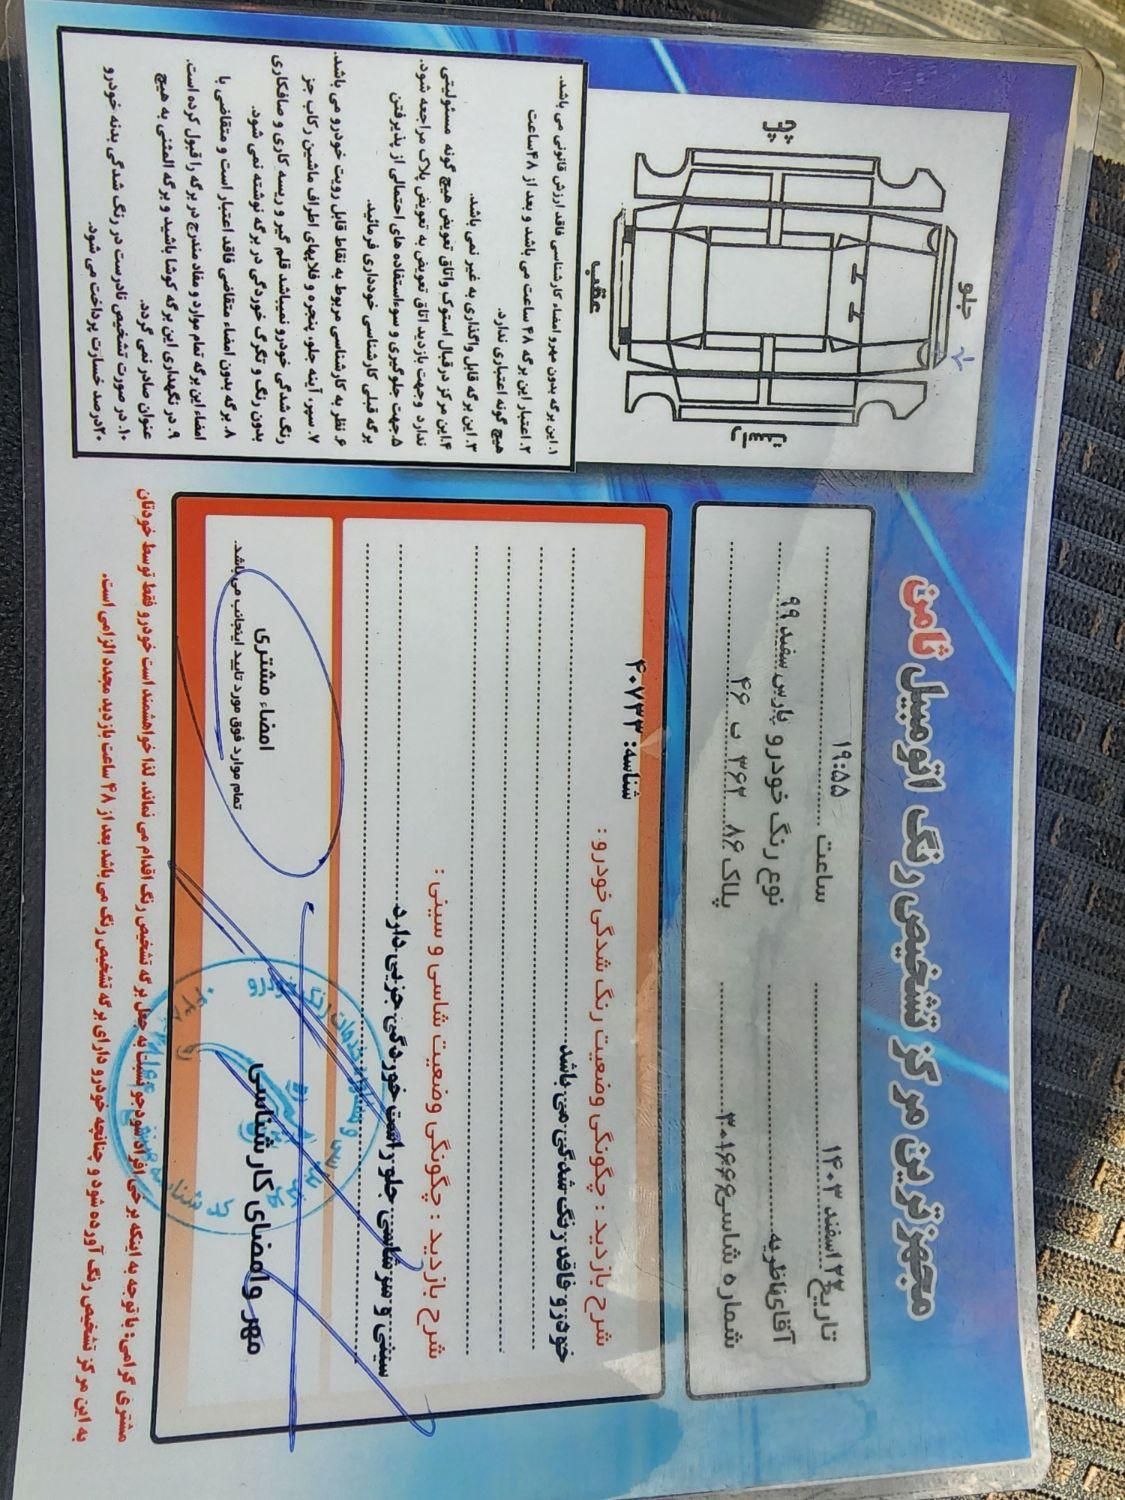 مجهزترین مرکز تشخیص رنگ اتومبیل ثامن
تاریخ ۲۴ اسفند ۱۴۰۳
ساعت ۱۹:۵۵
آقای ناظریه
نوع رنگ خودرو پارس سفید ۹۹
شماره شاسی ۳۰۱۶۶۶
پلاک ۸۶ ۳۶۲ ب ۴۶
شناسه: ۴۰۷۳۳
شرح بازدید : چگونگی وضعیت رنگ شدگی خودرو :
خودرو فاقد رنگ شدگی می باشد
شرح بازدید : چگونگی وضعیت شاسی و سینی :
سینی و سرشاسی جلو راست خوردگی جزیی دارد
مهر وامضای کارشناسی
امضاء مشتری
تمام موارد فوق مورد تایید اینجانب می باشد.
مشتری گرامی: با توجه به اینکه برخی افراد سودجو نسبت به جعل برگه تشخیص رنگ اقدام می نماند. لذا خواهشمند است خودرو فقط توسط خودتان
به این مرکز تشخیص رنگ آورده شود و چنانچه خودرو دارای برگه تشخیص رنگ می باشد بعد از ۴۸ ساعت بازدید مجدد الزامی است.
جلو
چپ
راست
عقب
۱. این برگه بدون مهر و امضاء کارشناسی فاقد ارزش قانونی می باشد.
۲. اعتبار این برگه ۴۸ ساعت می باشد و بعد از ۴۸ ساعت
هیچ گونه اعتباری ندارد.
۳. این برگه قابل واگذاری به غیر نمی باشد.
۴. این مرکز در قبال استوک واتاق تعویض هیچ گونه مسئولیتی
ندارد وجهت بازدید اتاق تعویض به تعویض پلاک مراجعه شود.
۵. جهت جلوگیری و سوءاستفاده های احتمالی از پذیرفتن
برگه قبلی کارشناسی خودداری فرمائید.
۶. نظر به کارشناسی مربوط به نقاط قابل رویت خودرو می باشد.
۷. سپر، آینه جلو، پنجره و فلاپهای اطراف ماشین رکاب جز
رنگ شدگی خودرو نمیباشد قلم گیر و ریسه کاری و صافکاری
بدون رنگ و تگرگ خوردگی در برگه نوشته نمی شود.
۸. برگه بدون امضاء متقاضی فاقد اعتبار است و متقاضی با
امضاء این برگه تمام موارد و مفاد مندرج در برگه را قبول کرده است.
۹. در نگهداری این برگه کوشا باشید و برگه المثنی به هیچ
عنوان صادر نمی گردد.
۱۰. در صورت تشخیص نادرست در رنگ شدگی بدنه خودرو
۲۰درصد خسارت پرداخت می شود.